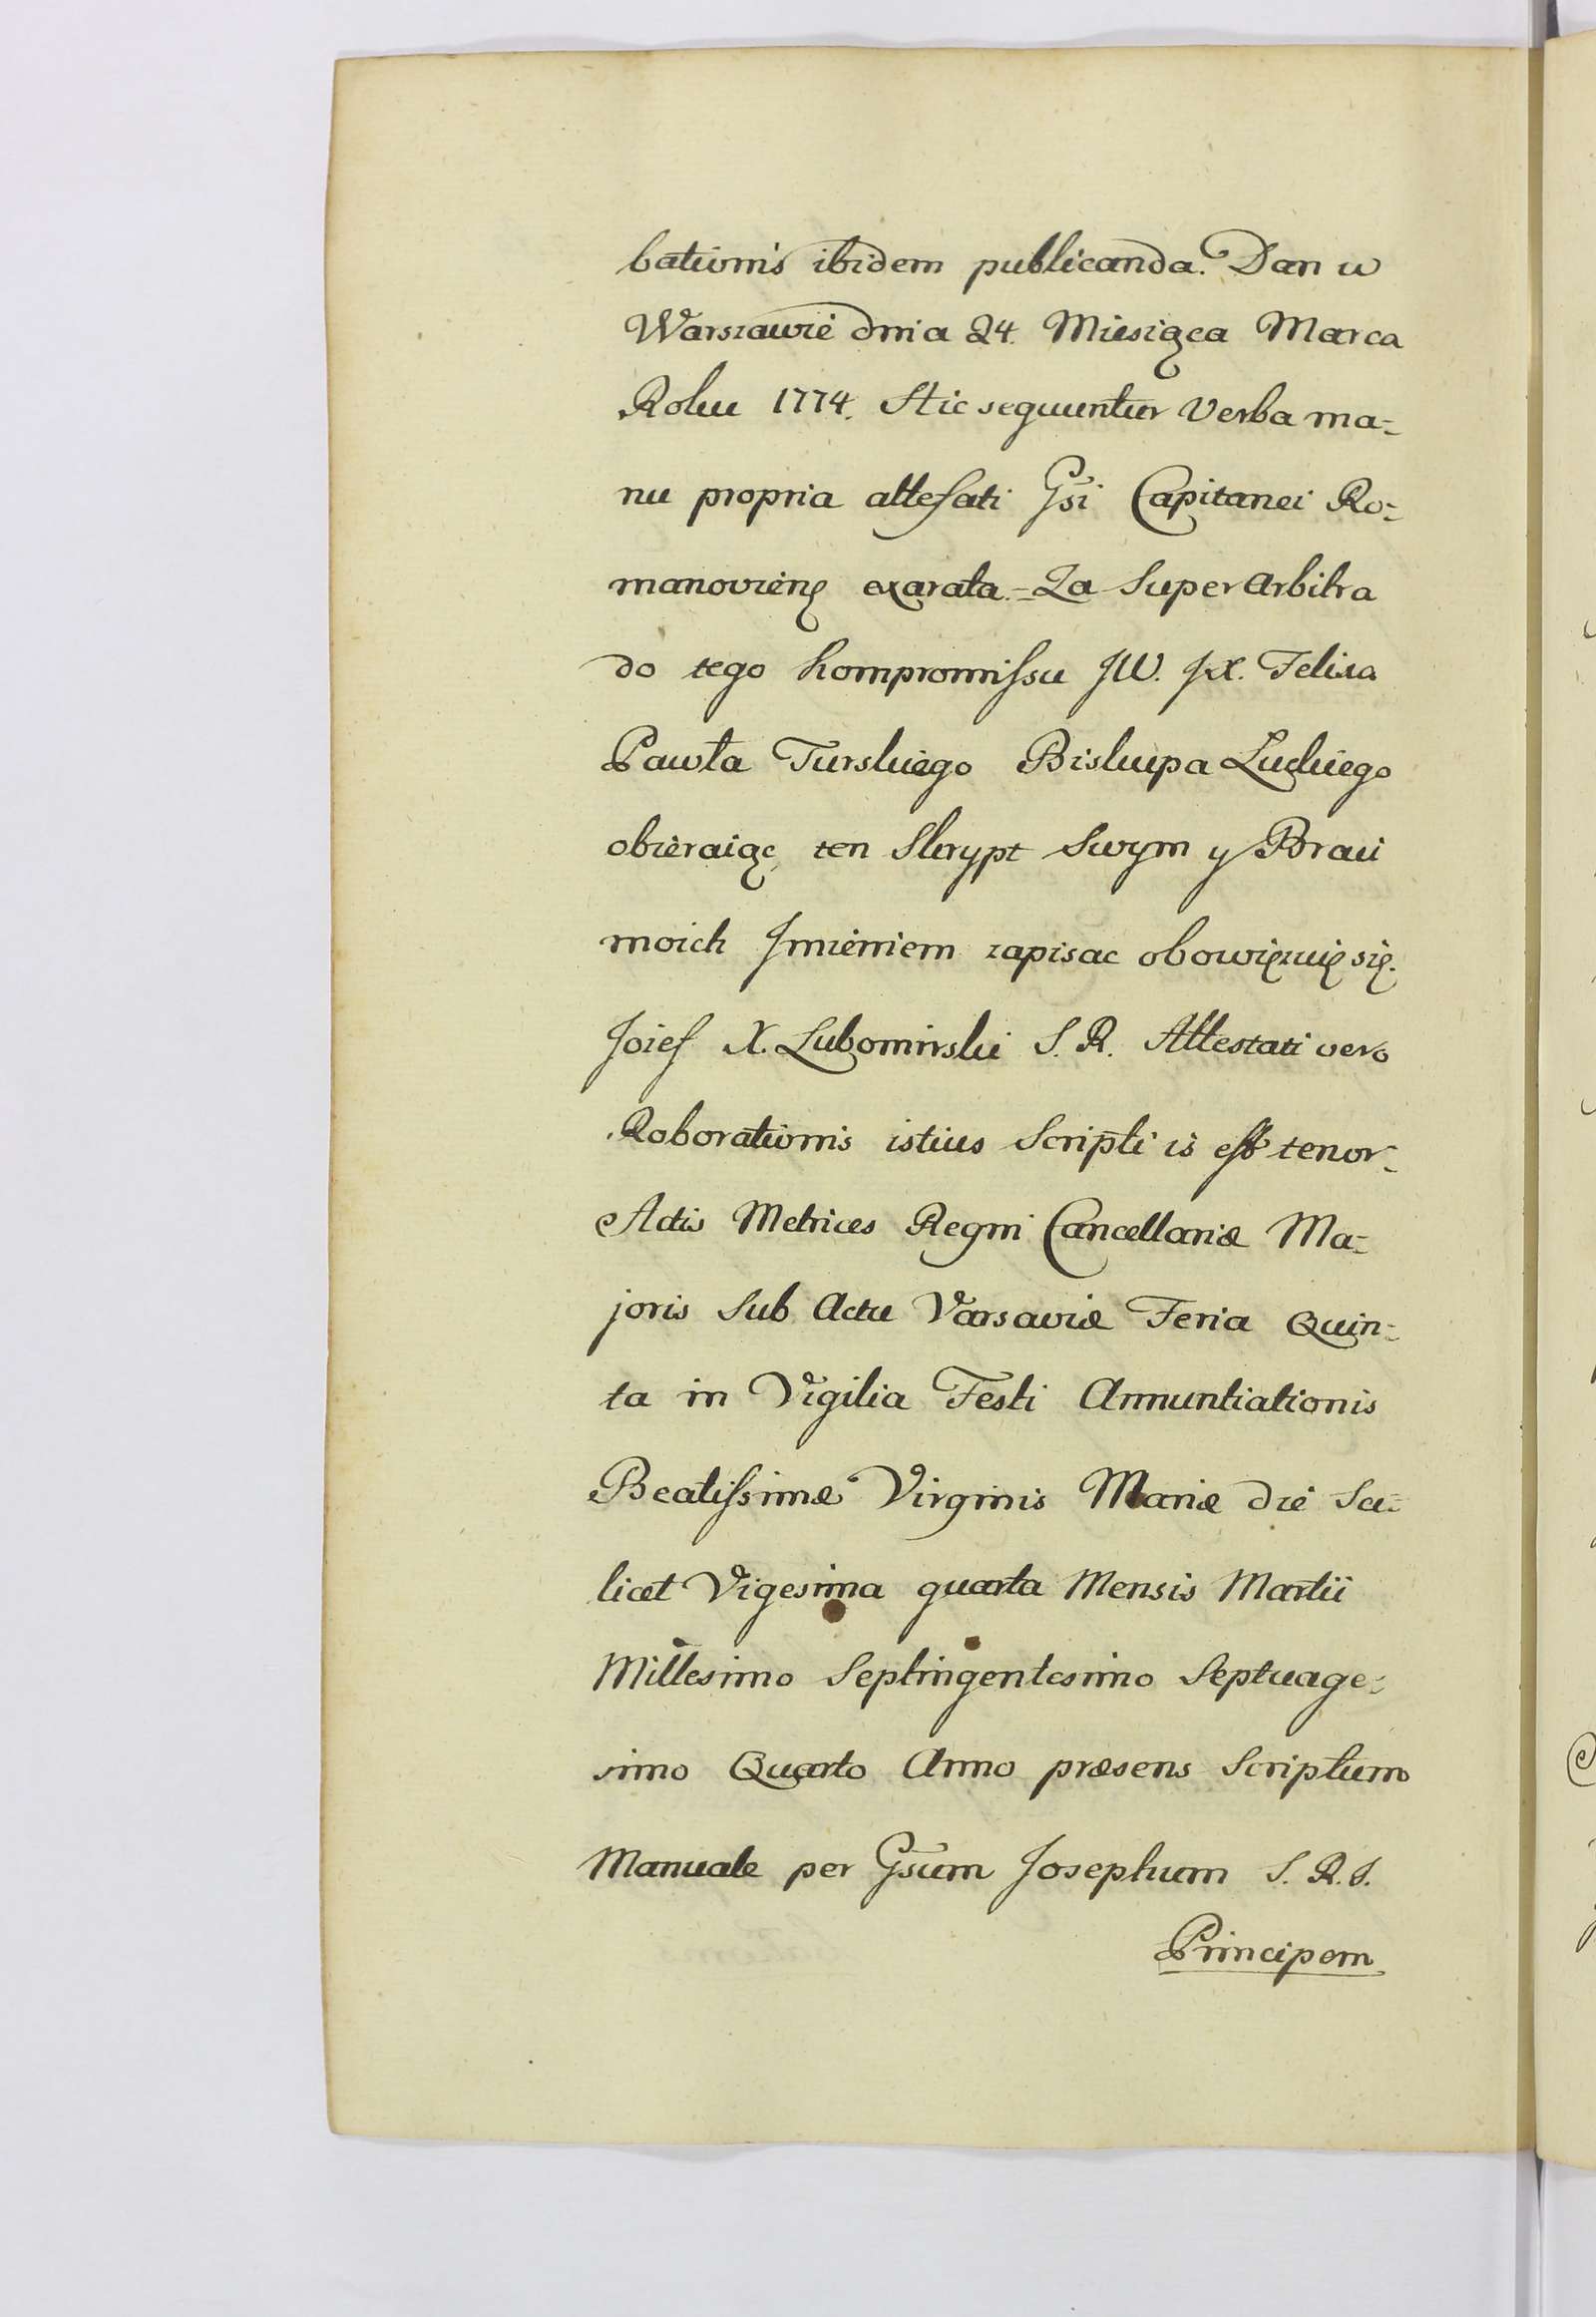 bationis ibidem publicanda. Dan w
Warszawie dnia 24. Miesiąca Marca
Roku 1774. Hic sequuntur Verba ma=
nu propria attefati Gsi Capitanei Ro=
manovien exarata.=Za SuperArbitra
do tego kompromissu JW. JX. Felixa
Pawła Turskiego Biskupa Luckiego
obieraiąc, ten Skrypt Swym y Braci
moich Jmieniem zapisac obowięzuię się.
Jozef X. Lubomirski S. R. Attestati vero
Roborationis istius Scripti is est tenor=
Actis Metrices Regni Cancellariæ Ma=
joris Sub Actu Varsaviæ Feria Quin=
ta in Vigilia Festi Annuntiationis
Beatissimæ Virginis Mariæ die Sci=
licet Vigesima quarta Mensis Martii
Millesimo Septingentesimo Septuage=
simo Quarto Anno præsens Scriptum
Manuale per Gsum Josephum S. R. J.
Principem